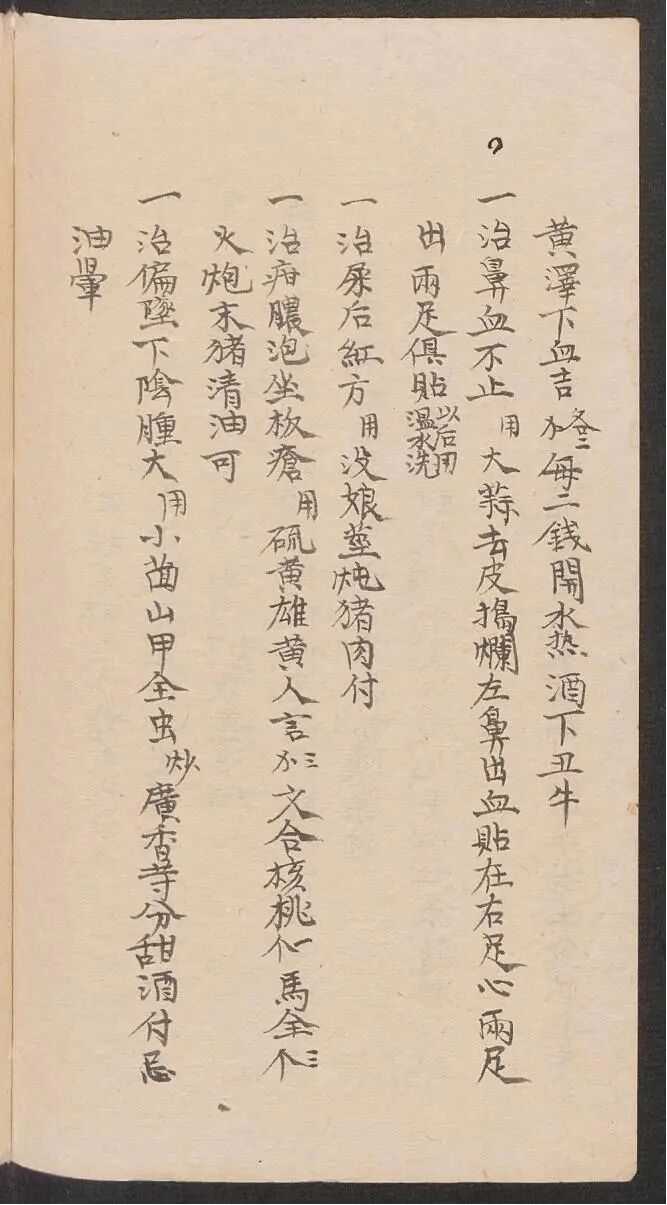 黄澤下血吉 各二 分 每二錢開水热酒下丑牛
一治鼻血不止用大蒜去皮搗爛左鼻出血貼在右足心兩足
出兩足俱貼以后用温水洗
一治尿后紅方用没娘莖炖猪肉付
一治疳膿泡坐板瘡用硫黄雄黄人言分三文合核桃仁馬全个三
火炮末猪清油可
一治偏墜下陰腫大用小茴山甲全虫炒廣香等分甜酒付忌
油暈